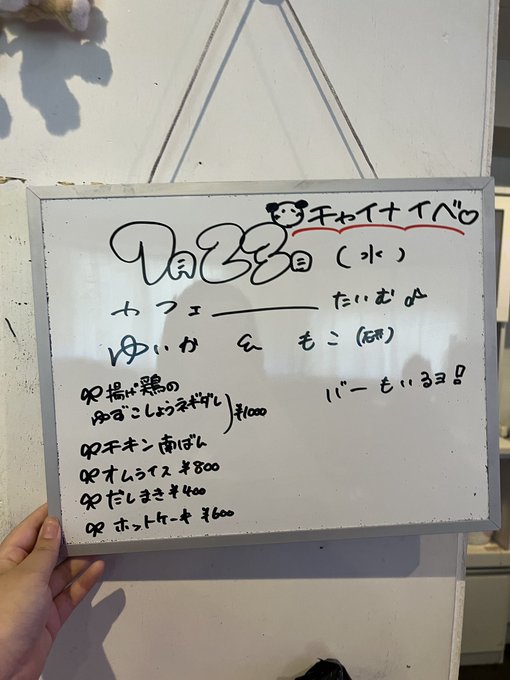 チャイナイベ♡
7月23日(水)
カフェ――――たいむ♪
ゆいか & もこ(研)
揚げ鶏の
ゆずこしょうネギダレ ¥1000
チキン南ばん
オムライス ¥800
だしまき ¥400
ホットケーキ ¥600
バーもいるヨ!!